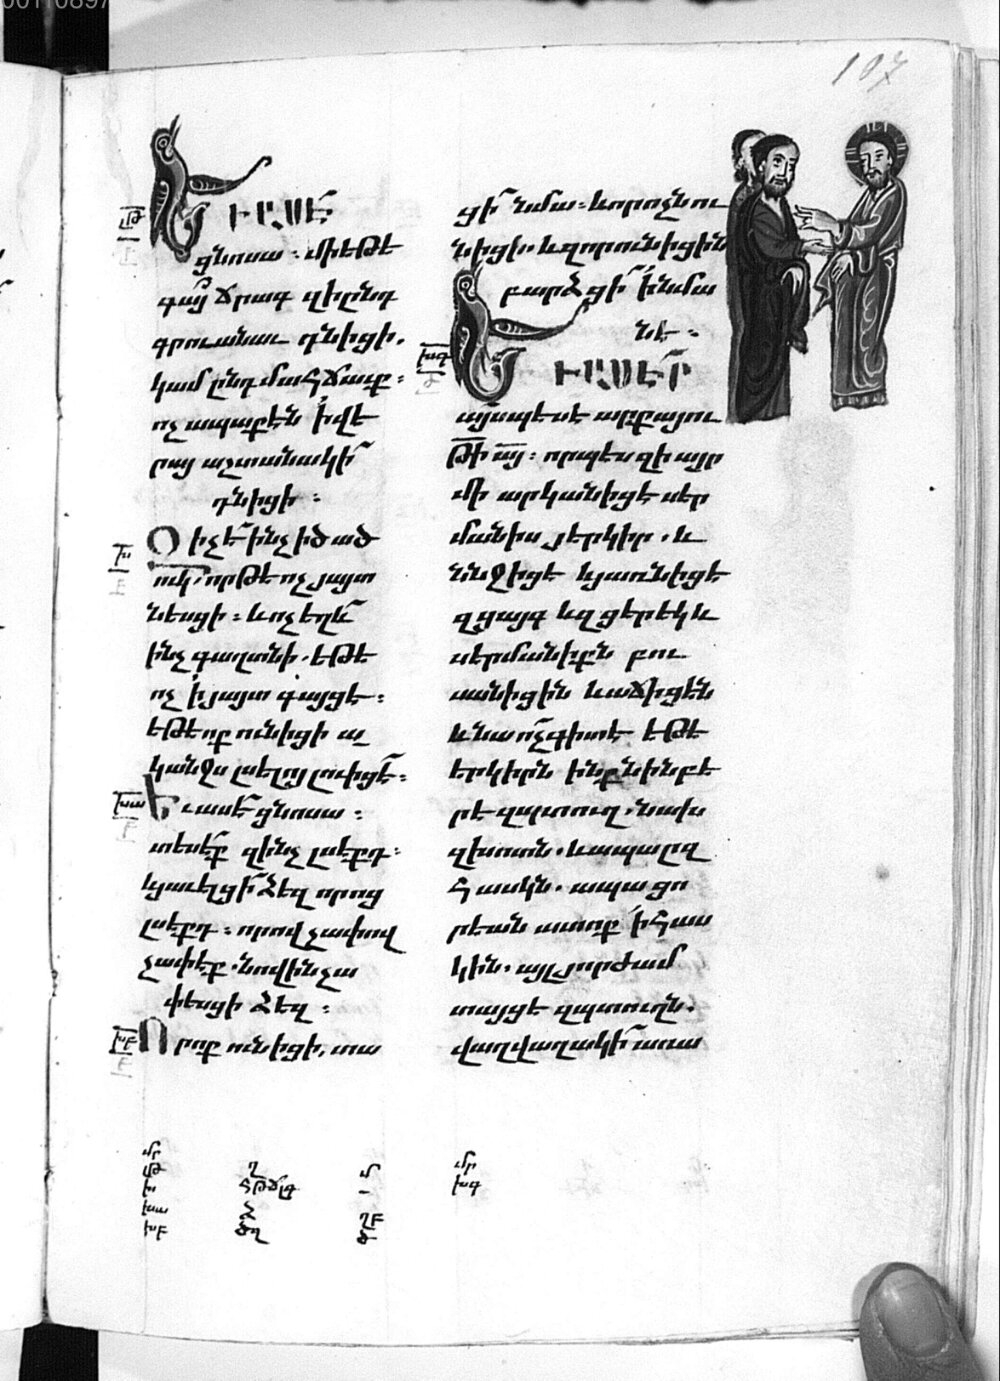 107
ԵՒ ԱՍԷ
ցնոսա ։ միեթէ
գայ ճրագ զիընդ
գրուանաւ դնիցի․
կամ ընդմահճաւք ։
ոչ ապաքէն ՛իվե
րայ աշտանակի
դնիցի ։
Ոիչէ ինչ իծած
ուկ՝ որթէ ոչ յայտ
նեսցի ։ և ոչ եղև
ինչ գաղտնի․ եթէ
ոչ ՛ի յայտ գայցէ ։
եթէ ոք ունիցի ա
կանջս լսելոյ լուիցէ ։
Եւ ասէ ցնոսա ։
տեսէք զինչ լսէքդ ։
կյաւելցի ձեզ որոց
լսէքդ ։ որով չափով
չափէք․ նովին չա
փեսցի ձեզ ։
Որոք ունիցի, տա
ցի նմա ։ և որոչն ու
նիցի․ և զոր ունիցին
բարձցի ՛ի նմա
նէ ։
ԵՒ ԱՍԷՐ
այսպէս է արքայու
թի այ ։ որպէս զի այր
մի արկանիցէ սեր
մանիս յերկիր․ և
ննջիցէ և յառնիցէ
զցայգ և զցերեկ և
սերմանիքն բու
սանիցին և աճիցեն
և նա ոչ գիտէ․ եթէ
երկիրն ինքնին բե
րէ զպտուղ․ նախ
զխոտն․ և ապա զ
հասկն․ ապա ցո
րեան ատոք ՛ի հաս
կին․ այլ յորժամ
տայցէ զպտուղն․
վաղվաղակի առա
լթ
խ
խա
խբ
խգ
մր
լթ
խ
խա
խբ
մր
խգ